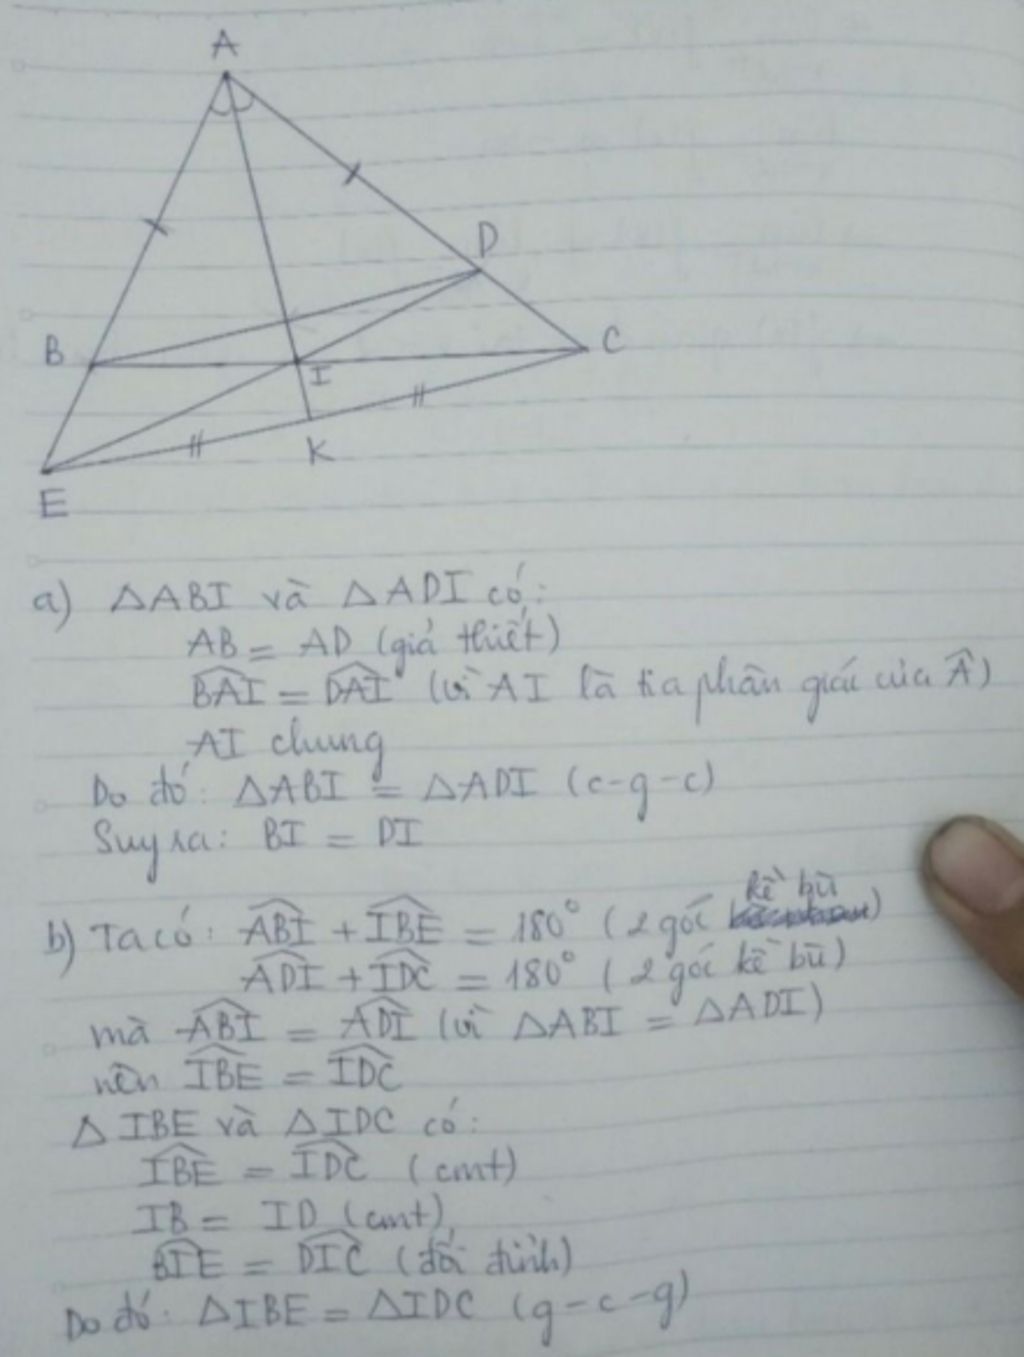 A
D
B
C
I
K
E
a) △ABI và △ADI có:
AB = AD (giả thiết)
$\widehat{BAI}$ = $\widehat{DAI}$ (vì AI là tia phân giác của $\widehat{A}$)
AI chung
Do đó: △ABI = △ADI (c-g-c)
Suy ra: BI = DI
b) Ta có: $\widehat{ABI}$ + $\widehat{IBE}$ = 180° (2 góc kề bù)
$\widehat{ADI}$ + $\widehat{IDC}$ = 180° (2 góc kề bù)
mà $\widehat{ABI}$ = $\widehat{ADI}$ (vì △ABI = △ADI)
nên $\widehat{IBE}$ = $\widehat{IDC}$
△IBE và △IDC có:
$\widehat{IBE}$ = $\widehat{IDC}$ (cmt)
IB = ID (cmt)
$\widehat{BIE}$ = $\widehat{DIC}$ (đối đỉnh)
Do đó: △IBE = △IDC (g-c-g)